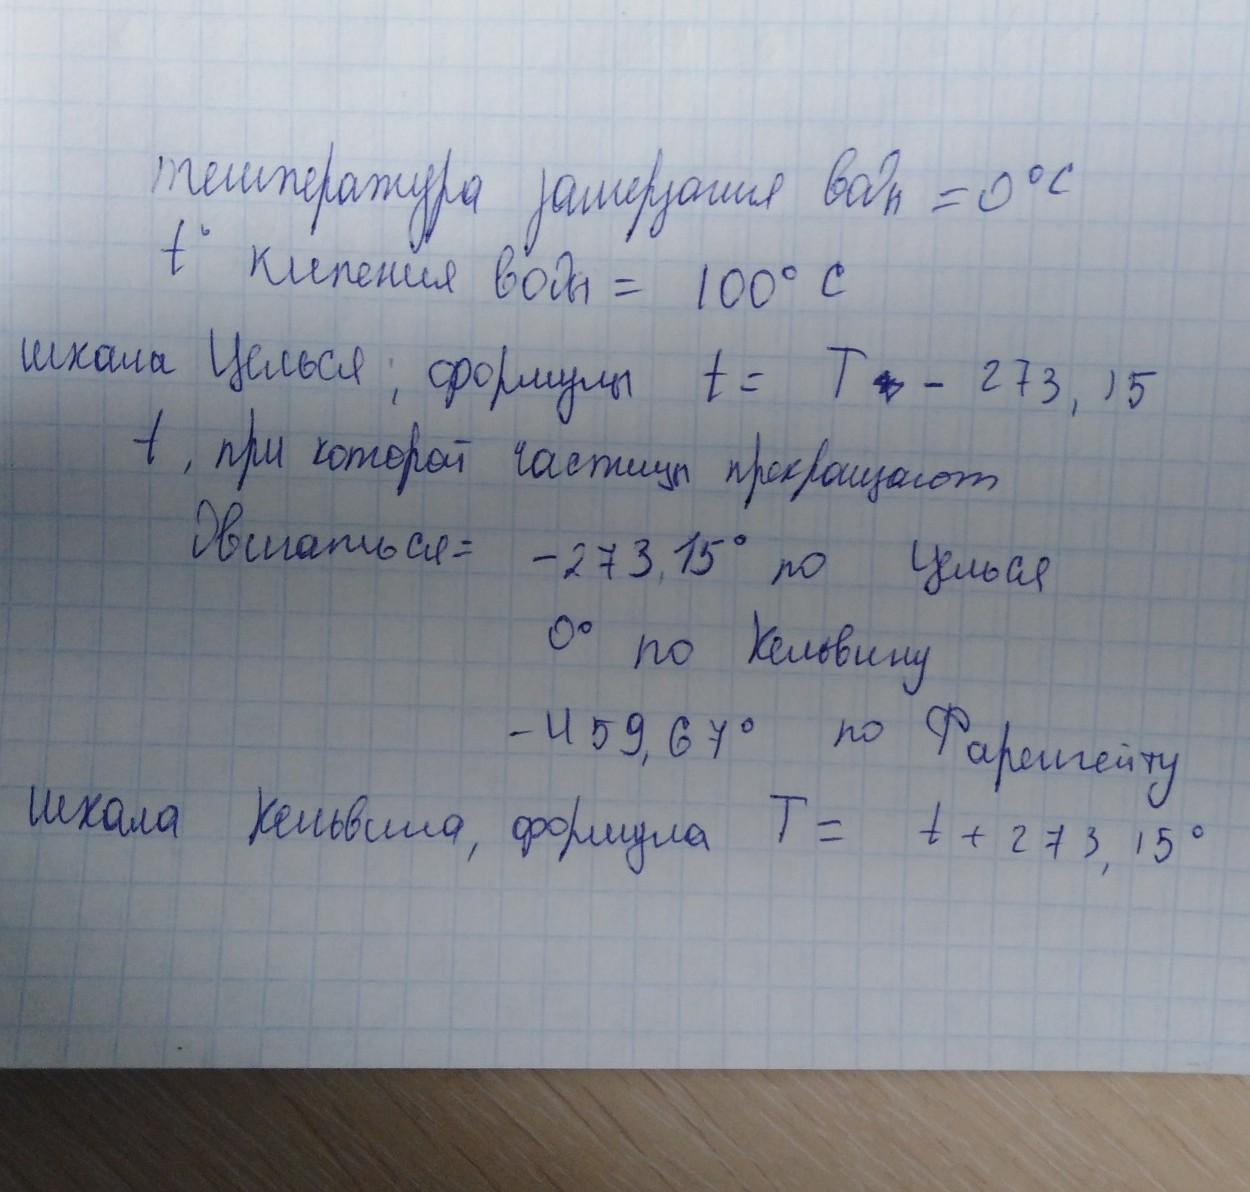 температура замерзания воды = 0°C
t° кипения воды = 100° C
шкала Целься; формулы t = T - 273,15
t, при которой частицы прекращают
двигаться = -273,15° по Целься
0° по Кельвину
-459,67° по Фаренгейту
шкала Кельвина, формула T = t + 273,15°